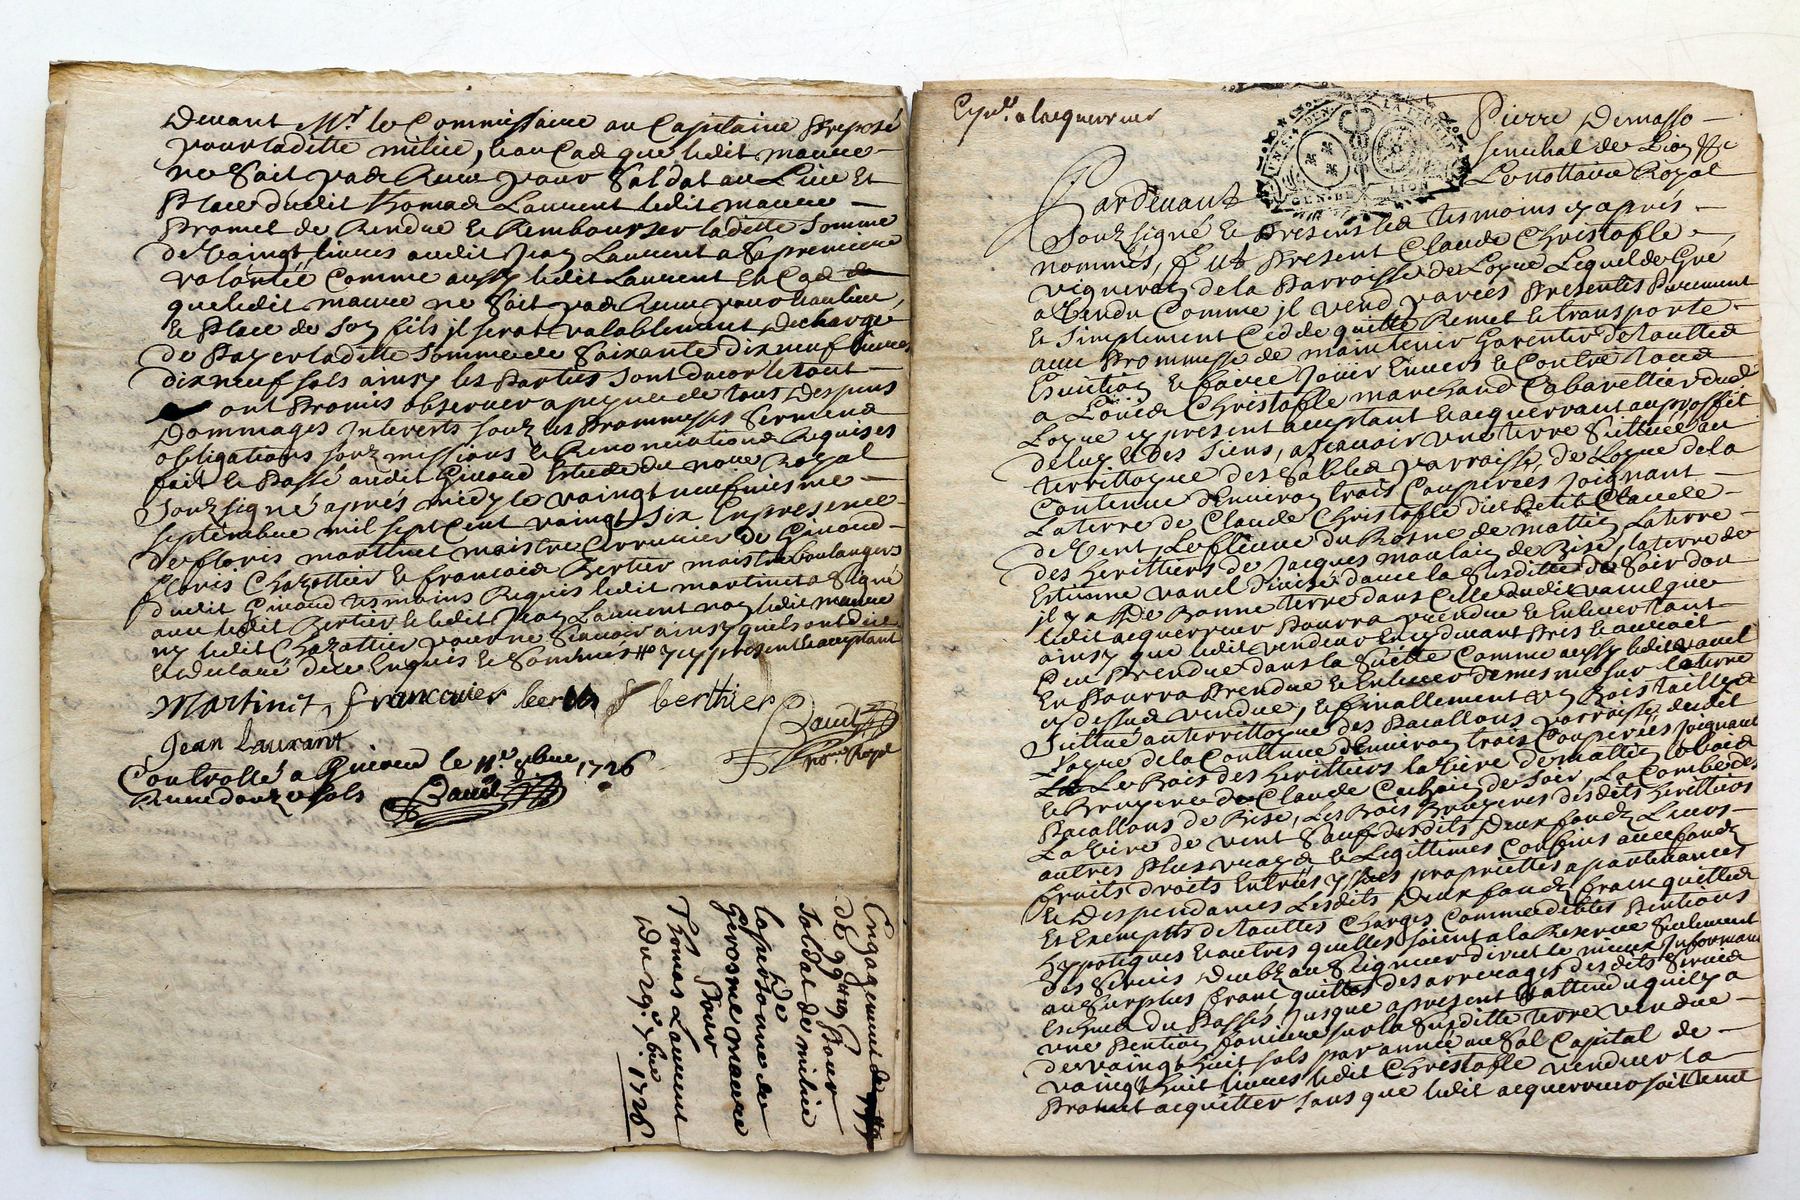 Devant Mr le Commissaire ou Capitaine Preposé
pour laditte milice, et au Cas que ledit maurre
ne Soit pas Receu pour Soldat au Lieu Et
Place dudit Thomas Laurent ledit maurre
Promet de Rendre et Rembourser laditte Somme
de vaingt livres audit Jean Laurent a Sa premiere
volontée Comme aussy ledit Laurent En Cas
que ledit maurre ne Soit pas Receu pour et au lieu
et Place de Son fils il serat valablement Decharge
de Payer laditte Somme de Soixante dix neuf livres
dix neuf sols ainsy les Parties Sont dacor le tout
ont Promis observer a peyne de tous Despens
Dommages Interests souz les Prommesses Serments
obligations souzmissions et Renonciations Requises
fait et Passé audit Givord Estude du noire Royal
Souzsigné aprés midy le vaingt neufviesme
Septembre mil sept Cent vaingt Six En presence
de floris martinet maistre Serrurier de Givord
floris Chazottier et francois Bertier maistre boulangers
dudit Givord tesmoins Requis ledit martinet a Signé
avec ledit Bertier et ledit Jean Laurent non ledit maurre
ny ledit Chazottier pour ne Scavoir ainsy quils ont dit
et declaré de ce Enquis et Sommés # y cy present et aceptant
Martinet francoies berthier
Jean laurant
Controllé a Givord le 11e 8bre 1726
Receu douze sols
Engagement de
de 99 ... Pour
Soldat de milice
De
la personne de
gerosme maurre
Pour
Thomas Laurent
Du 29e 7bre 1726
Expd. a lacquerreur
Pierre Demasso
senechal de Lion &c
Pardevant Le nottaire Royal
Souzsigné et Presens les tesmoins cy aprés
nommés, fut Present Claude Christofle
vigneron de la Parroisse de Loyre Lequel de Gré
a vendu Comme il vend par ces Presentes Purement
et Simplement Cedde quitte Remet et transporte
avec Prommesse de maintenir Garentir de touttes
Eviction et faire Jouir Envers et Contre tous
a Loüis Christofle marchand Cabarettier dudit
Loyre cy present aceptant et acquerrant au proffit
de luy et Des Siens, a scavoir une terre Scittuée au
territtoire des Sables parroisse de Loyre de la
Contenue d'Environ trois Couperées Joignant
La terre de Claude Christofle dit Petit Claude
de vent, Le fleuve du Rosne de mattin La terre
des heritiers de Jacques moulain de Bise, la terre de
Estienne vanel
il y a De Bonne terre dans Celle dudit vanel que
ledit acquerreur Pourra prendre et Enlever tout
ainsy que ledit vendeur En cy devant Pris et auroit
Peu Prendre dans la Suitte Comme aussy ledit vanel
En Pourra Prendre et Enlever de mesme sur la terre
cy dessus vendue, et finallement un Bois taillies
Scittué au territtoire des Bacallons parroisse dudit
Loyre de la Contenue d'Environ trois Couperées Joignant
Le Bois des heritiers
et Bruyeres de Claude de Soir, La Combe des
Bacallons de Bise, Les Bois Bruyeres desdits heritiers
de vent Sauf desdits Deux fondz Leurs
autres Plus vrays et Legittimes Confins avec fondz
fruits droits Entrées yssues propriettes apartenances
et Despendances Lesdits Deux fondz francz quittes
Et Exempts de touttes Charges Commedebtes Pentions
hypotiques et autres quelles soient a la Reserve Seulement
des Servis Deubz au Seigneur direct le mieux Informant
au Surplus franc quitte des arrerages desdits Servis
Escheus du Passés Jusque apresent Et attendu quil y a
une Pention fonciere sur la Susditte terre vendue
de vaingt huit sols par année au Sol Capital de
vaingt huit livres ledit Christofle vendeur la
Promet acquitter sans que ledit acquerreur soit tenu